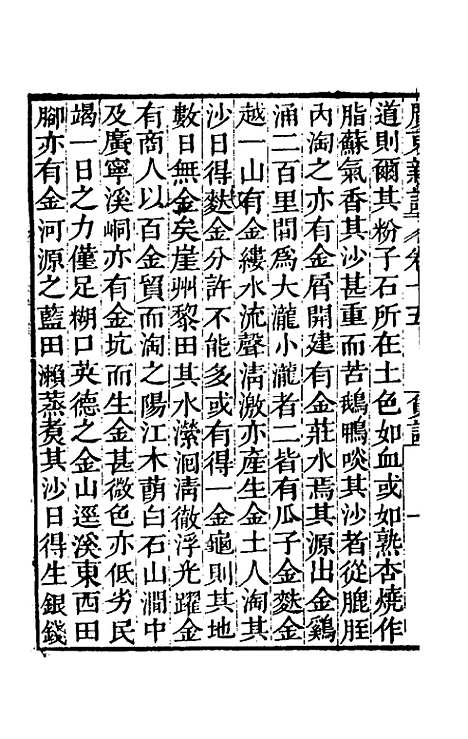 廣東新語 卷十五 貨語 一
道則爾其粉子石所在土色如血或如熟杏燒作
脂蘇氣香其沙甚重而苦鵝鴨啖其沙者從膍胵
內淘之亦有金屑開建有金莊水焉其源出金鷄
涌二百里間爲大瀧小瀧者二皆有瓜子金麩金
越一山有金縷水流聲淸激亦產生金土人淘其
沙日得麩金分許不能多或有得一金龜則其地
數日無金矣崖州黎田其水瀠洄淸徹浮光躍金
有商人以百金貿而淘之陽江木蓢白石山澗中
及廣寧溪峒亦有金坑而生金甚微色亦低劣民
竭一日之力僅足糊口英德之金山逕溪東西田
腳亦有金河源之藍田瀨蒸煑其沙日得生銀錢